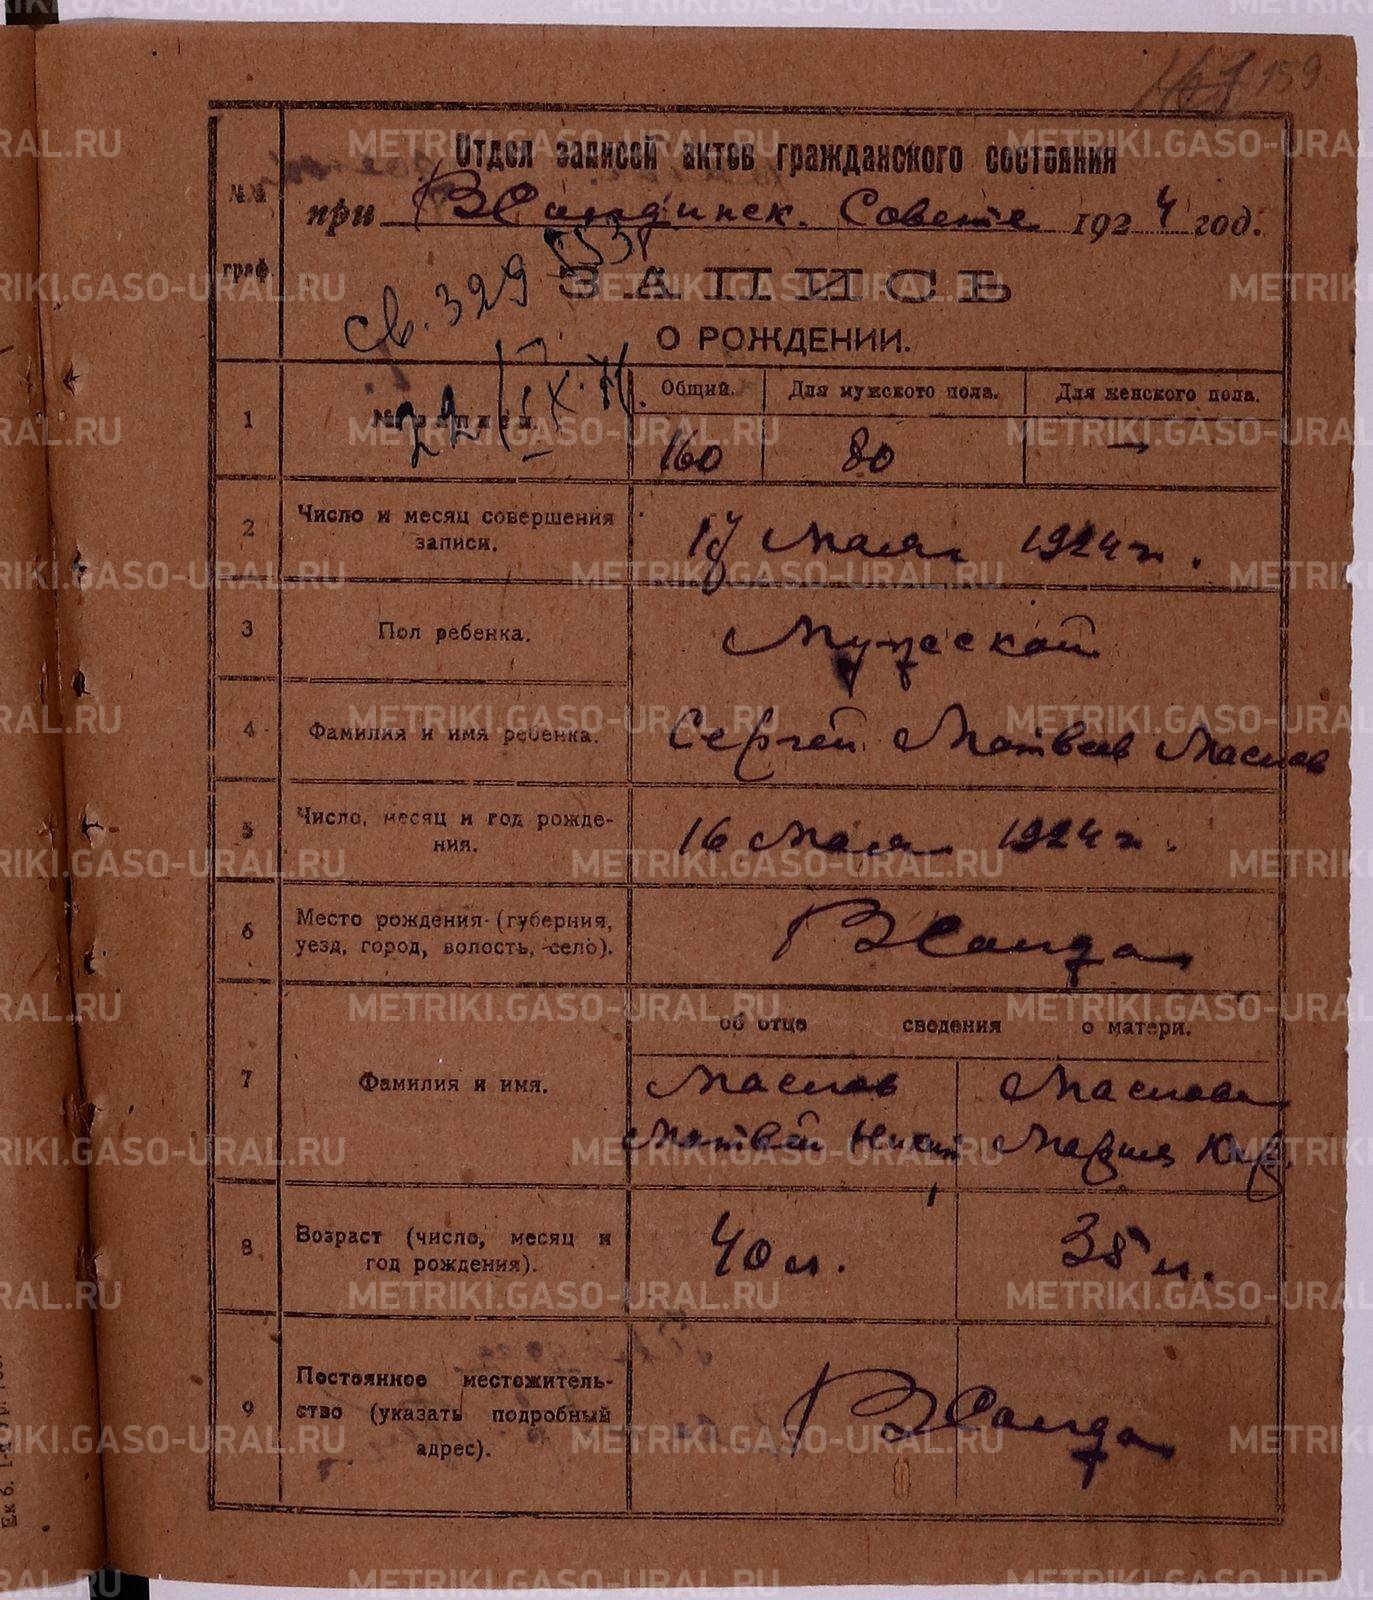 159
Отдел записей актов гражданского состояния
при Советe 1924 год.
№№ граф.
ЗАПИСЬ
О РОЖДЕНИИ.
св. 329
22/IX
1
Общий. Для мужского пола. Для женского пола.
160 80 —
2 Число и месяц совершения записи.
Мая 1924 г.
3 Пол ребенка.
Мужеской
4 Фамилия и имя ребенка.
Сергей Матвеев Маслов
5 Число, месяц и год рождения.
16 Мая 1924 г.
6 Место рождения (губерния, уезд, город, волость, село).
В Салда
об отце сведения о матери.
7 Фамилия и имя.
Маслов Маслова
Матвей Никит Мария
8 Возраст (число, месяц и год рождения).
40 л. 38 л.
9 Постоянное местожительство (указать подробный адрес).
В Салда
METRIKI.GASO-URAL.RU